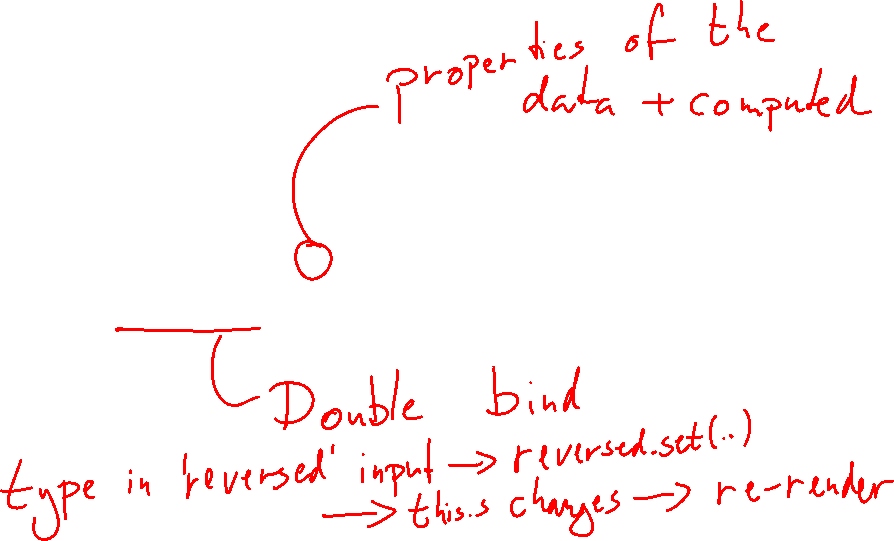 properties of the
data + computed
Double bind
type in 'reversed' input → reversed.set(..)
→ this.s changes → re-render